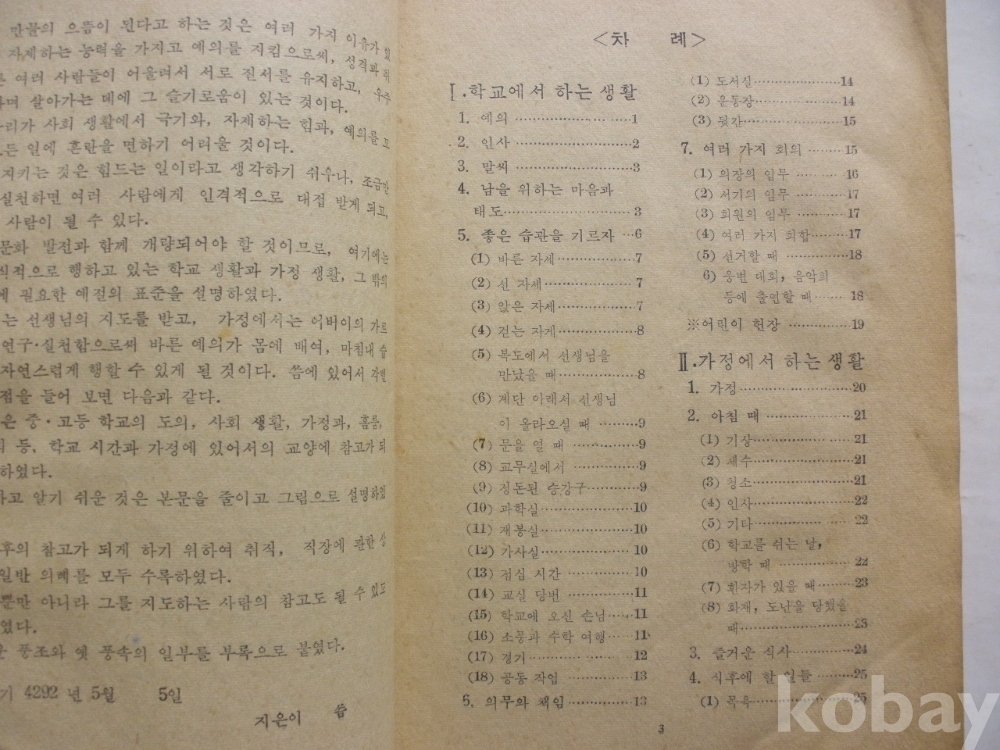 만물의 으뜸이 된다고 하는 것은 여러 가지 이유가
자제하는 능력을 가지고 예의를 지킴으로써, 성격과
여러 사람들이 어울려서 서로 질서를 유지하고,
살아가는 데에 그 슬기로움이 있는 것이다.
사회 생활에서 극기와, 자제하는 힘과, 예의를
일에 혼란을 면하기 어려울 것이다.
지키는 것은 힘드는 일이라고 생각하기 쉬우나, 조금만
실천하면 여러 사람에게 인격적으로 대접 받게 되고,
사람이 될 수 있다.
문화 발전과 함께 개량되어야 할 것이므로, 여기에는
행하고 있는 학교 생활과 가정 생활, 그 밖의
필요한 예절의 표준을 설명하였다.
선생님의 지도를 받고, 가정에서는 어버이의
연구·실천함으로써 바른 예의가 몸에 배여, 마침내
자연스럽게 행할 수 있게 될 것이다. 씀에 있어서
점을 들어 보면 다음과 같다.
중·고등 학교의 도의, 사회 생활, 가정과, 홈룸,
등, 학교 시간과 가정에 있어서의 교양에 참고가 되
하였다.
알기 쉬운 것은 본문을 줄이고 그림으로 설명하였
참고가 되게 하기 위하여 취직, 직장에 관한
일반 의례를 모두 수록하였다.
뿐만 아니라 그를 지도하는 사람의 참고도 될 수 있도
였다.
풍조와 옛 풍속의 일부를 부록으로 붙였다.
기 4292 년 5월 5일
지은이 씀
<차 례>
Ⅰ.학교에서 하는 생활
1. 예의 ……………1
2. 인사 ……………2
3. 말씨 ……………3
4. 남을 위하는 마음과
태도……………3
5. 좋은 습관을 기르자 …6
(1) 바른 자세……………7
(2) 선 자세 ……………7
(3) 앉은 자세……………7
(4) 걷는 자세……………8
(5) 복도에서 선생님을
만났을 때 ……………8
(6) 계단 아래서 선생님
이 올라오실 때 ………9
(7) 문을 열 때 ……………9
(8) 교무실에서 ……………9
(9) 정돈된 승강구……………9
(10) 과학실……………10
(11) 재봉실……………10
(12) 가사실……………10
(13) 점심 시간 ……………10
(14) 교실 당번……………11
(15) 학교에 오신 손님……11
(16) 소풍과 수학 여행……11
(17) 경기 ……………12
(18) 공동 작업 ……………13
6. 의무와 책임 ……………13
(1) 도서실……………14
(2) 운동장……………14
(3) 뒷간 ……………15
7. 여러 가지 회의 ………15
(1) 의장의 임무 ………16
(2) 서기의 임무 ………17
(3) 회원의 임무 ………17
(4) 여러 가지 회합………17
(5) 선거할 때……………18
(6) 웅변 대회, 음악회
등에 출연할 때 ………18
※어린이 헌장 ……………19
Ⅱ.가정에서 하는 생활
1. 가정……………20
2. 아침 때 ……………21
(1) 기상……………21
(2) 세수……………21
(3) 청소……………21
(4) 인사……………22
(5) 기타……………22
(6) 학교를 쉬는 날,
방학 때……………22
(7) 환자가 있을 때………23
(8) 화재, 도난을 당했을
때……………23
3. 즐거운 식사……………24
4. 식후에 할 일들 ………25
(1) 목욕……………25
3
kobay